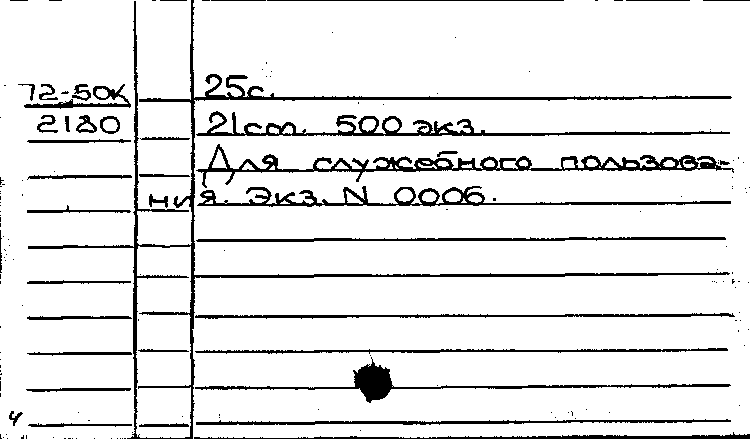 72-50К 25с.
2180 21см. 500 экз.
Для служебного пользова-
ния. Экз. N 0006.
4